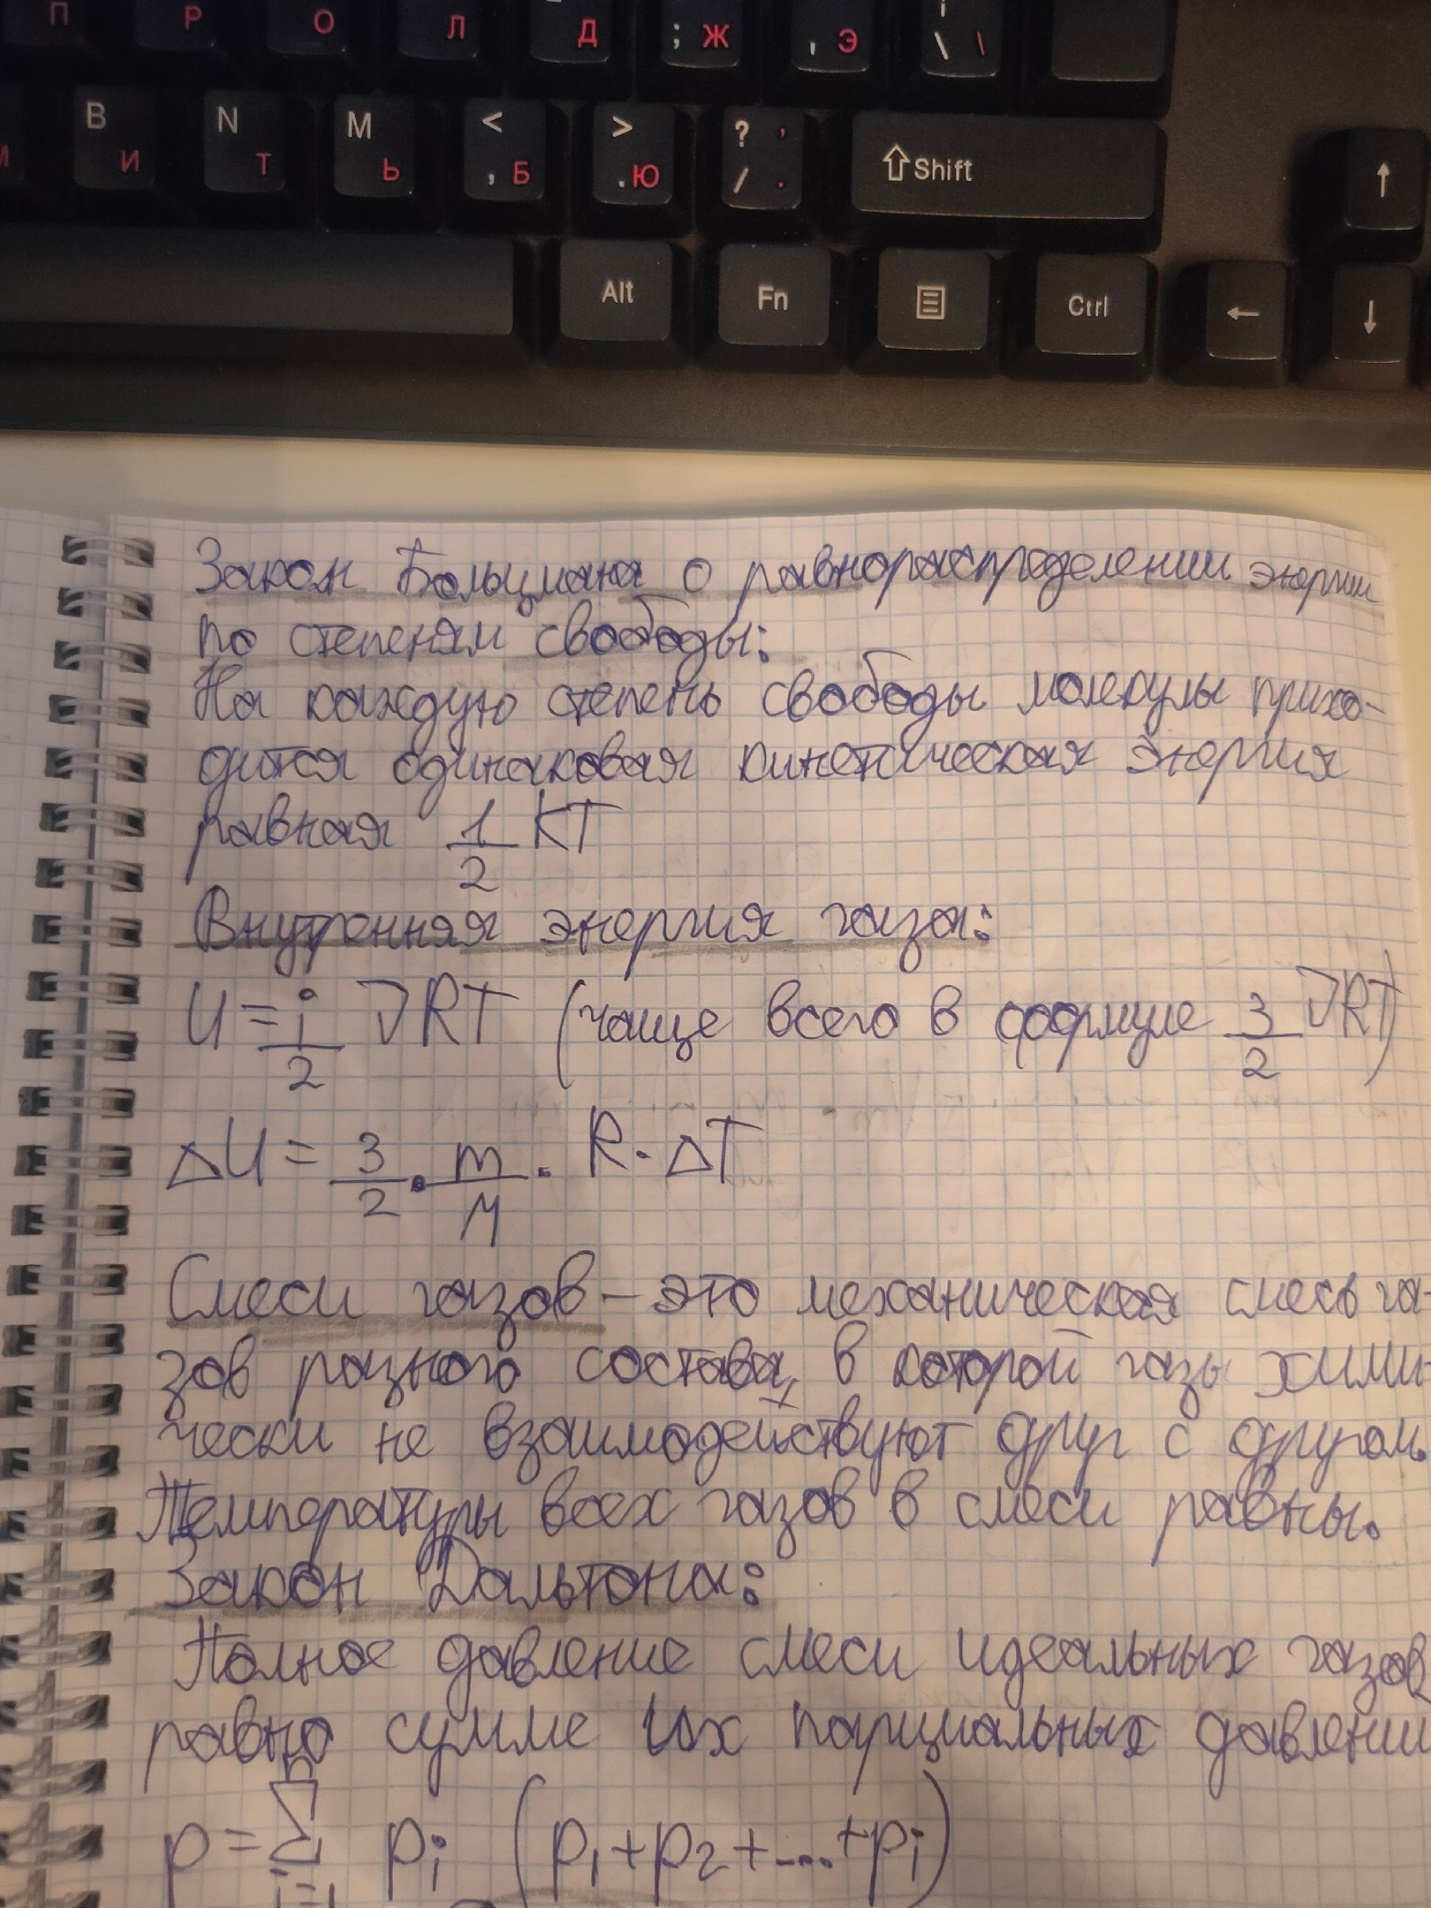 П Р О Л Д ; Ж , Э \ \
В И N Т М Ь < , Б > . Ю ? , / . ⇧Shift ↑
Alt Fn Ctrl ← ↓
Закон Больцмана о равнораспределении энергии
по степеням свободы:
На каждую степень свободы молекулы прихо-
дится одинаковая кинетическая энергия
равная 1/2 KT
Внутренняя энергия газа:
U = i/2 νRT (чаще всего в формуле 3/2 νRT)
ΔU = 3/2 · m/M · R · ΔT
Смеси газов – это механическая смесь га-
зов разного состава, в которой газы хими-
чески не взаимодействуют друг с другом.
Температуры всех газов в смеси равны.
Закон Дальтона:
Полное давление смеси идеальных газов
равно сумме их парциальных давлений
n
p = Σ pi (p1 + p2 + ... + pi)
i=1